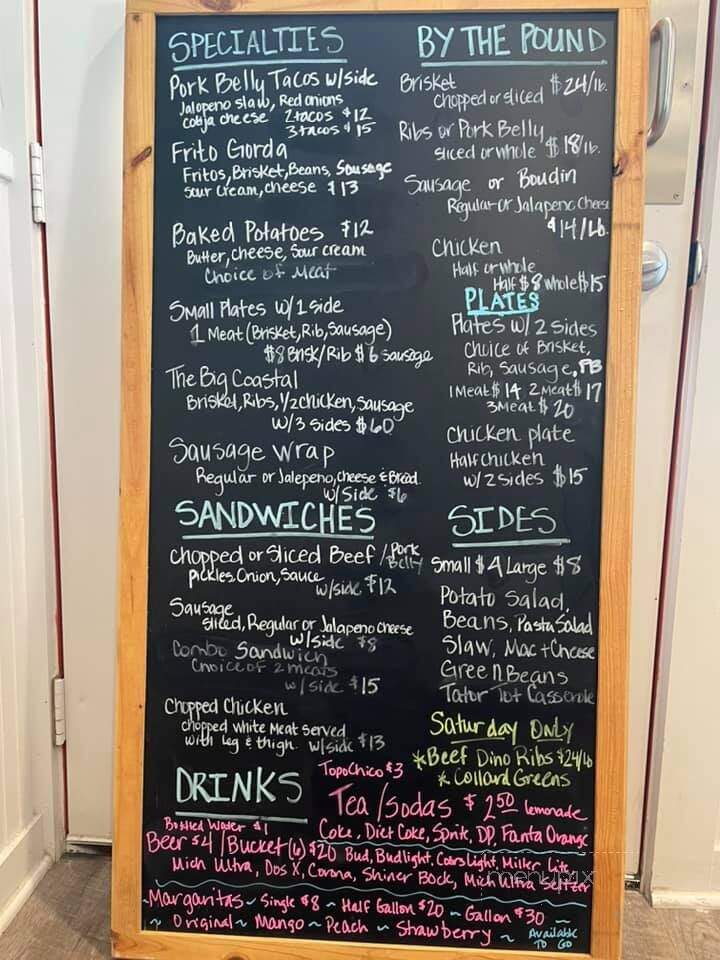 SPECIALTIES
Pork Belly Tacos w/side
Jalapeno slaw, Red onions
cotja cheese 2 tacos $12
3 tacos $15
Frito Gorda
Fritos, Brisket, Beans, Sausage
Sour cream, cheese $13
Baked Potatoes $12
Butter, cheese, Sour cream
Choice of Meat
Small Plates w/ 1 side
1 Meat (Brisket, Rib, Sausage)
$8 Brisk/Rib $6 sausage
The Big Coastal
Brisket, Ribs, 1/2 chicken, Sausage
w/3 sides $60
Sausage wrap
Regular or Jalepeno, cheese & Bread
w/side $6
SANDWICHES
chopped or sliced Beef / Pork Belly
pickles, Onion, Sauce
w/side $12
Sausage
sliced, Regular or Jalapeno cheese
w/side $8
Combo Sandwich
Choice of 2 meats
w/side $15
Chopped Chicken
chopped white Meat served
with leg & thigh. w/side $13
BY THE POUND
Brisket $24/lb.
Chopped or sliced
Ribs or Pork Belly
sliced or whole $18/lb.
Sausage or Boudin
Regular or Jalapeno Cheese
$14/Lb.
Chicken
Half or whole
Half $8 whole $15
PLATES
Plates w/ 2 sides
Choice of Brisket,
Rib, Sausage, PB
1 Meat $14 2 Meat $17
3 Meat $20
Chicken plate
Half chicken
w/ 2 sides $15
SIDES
Small $4 Large $8
Potato Salad,
Beans, Pasta Salad
Slaw, Mac + Cheese
Green Beans
Tator Tot Casserole
Saturday Only
* Beef Dino Ribs $24/lb
* Collard Greens
DRINKS
TopoChico $3
Tea/Sodas $2.50 lemonade
Bottled Water $1
Coke, Diet Coke, Sprite, DP, Fanta Orange
Beer $4 / Bucket (6) $20 Bud, Budlight, Coors Light, Miller Lite,
Mich Ultra, Dos X, Corona, Shiner Bock, Mich Ultra Seltzer
~Margaritas ~ Single $8 ~ Half Gallon $20 ~ Gallon $30 ~
~ Original ~ Mango ~ Peach ~ Strawberry ~ Available
TO GO
menupix